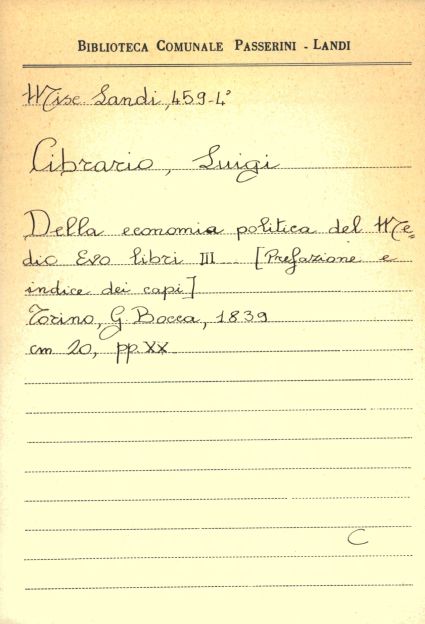 BIBLIOTECA COMUNALE PASSERINI - LANDI
Misc. Landi, 459-4°
Cibrario, Luigi
Della economia politica del Me-
dio Evo libri III ... [Prefazione e
indice dei capi]
Torino, G. Bocca, 1839
cm 20, pp. XX
C